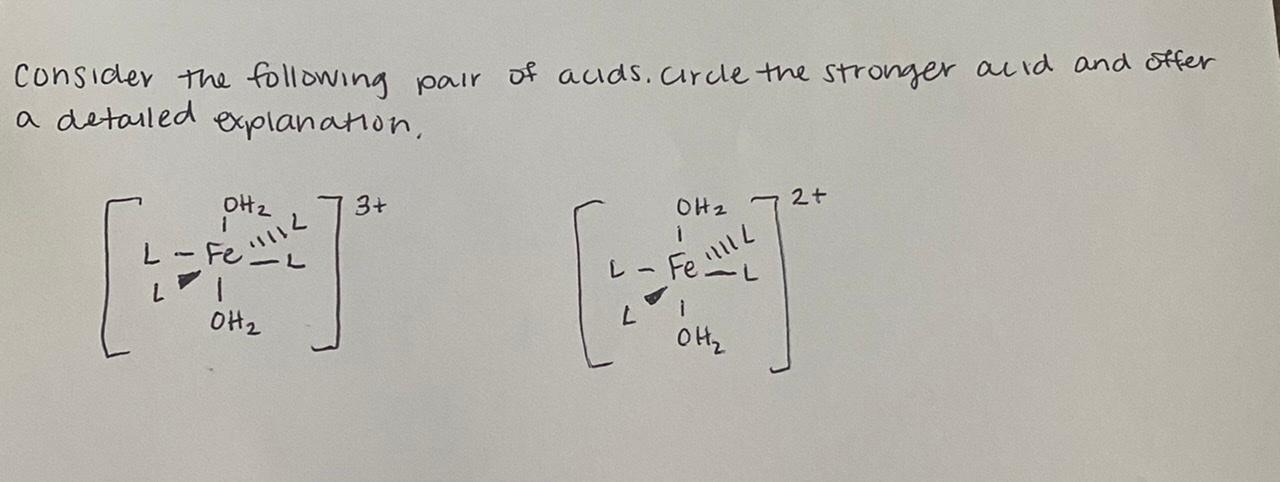 Consider the following pair of acids. Circle the stronger acid and offer
a detailed explanation.
OH2 3+ OH2 2+
L - Fe L L - Fe L
L L L L
OH2 OH2